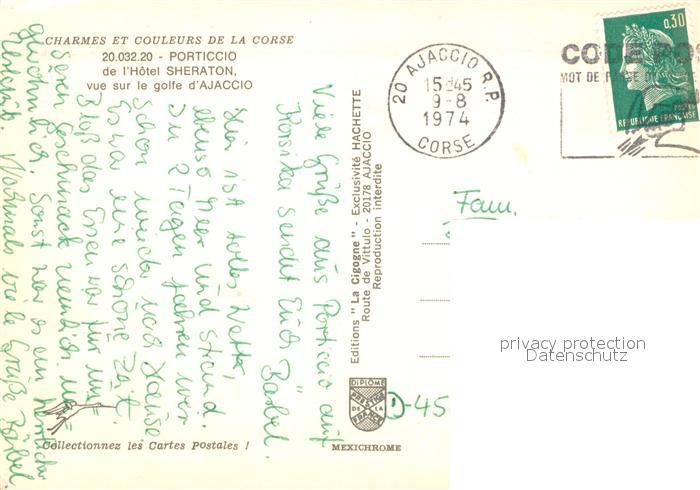 CHARMES ET COULEURS DE LA CORSE
20.032.20 - PORTICCIO
de l'Hôtel SHERATON,
vue sur le golfe d'AJACCIO
Viele Grüße aus Porticcio auf
Korsika sendet Euch Bärbel.
Hier ist tolles Wetter,
ebenso Meer und Strand.
In 2 Tagen fahren wir
schon wieder nach Hause
Es war eine schöne Zeit.
Bloß das Essen war für uns
seren Geschmack ziemlich un
gewöhnlich. Sonst war es ein herrlicher
Nochmals viele Grüße Bärbel
Collectionnez les Cartes Postales !
MEXICHROME
Editions " La Cigogne " - Exclusivité HACHETTE
Route de Vittulo - 20178 AJACCIO
Reproduction interdite
DIPLOME
PRESTIGE
DE LA
FRANCE
20 AJACCIO R.P.
15H45
9-8
1974
CORSE
CODE POS
MOT DE PASSE DE
0,30
POSTES
REPUBLIQUE FRANÇAISE
Fam.
D-45
privacy protection
Datenschutz